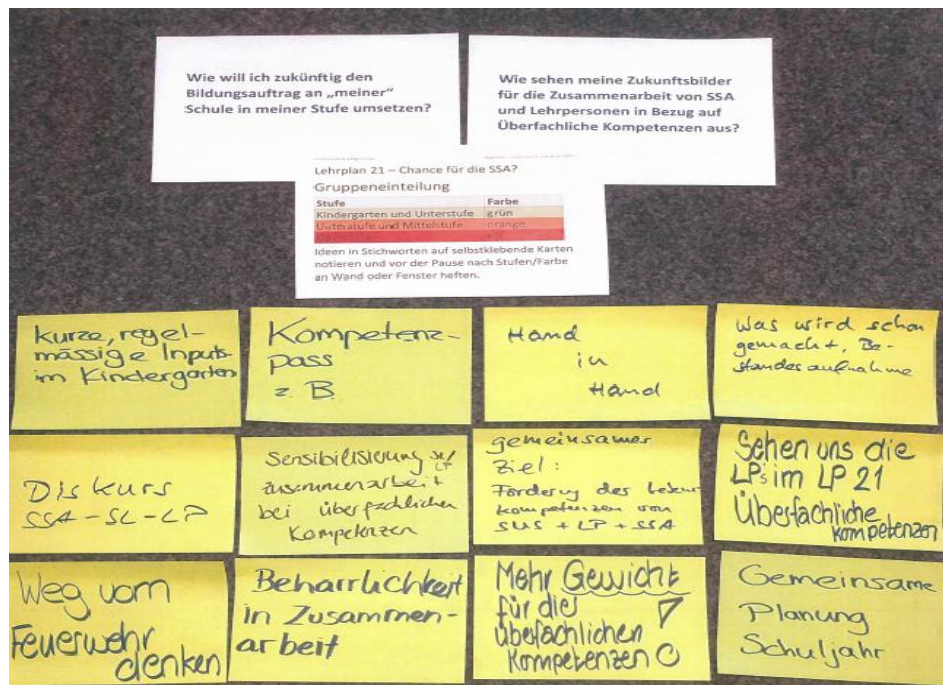 Wie will ich zukünftig den
Bildungsauftrag an „meiner“
Schule in meiner Stufe umsetzen?
Wie sehen meine Zukunftsbilder
für die Zusammenarbeit von SSA
und Lehrpersonen in Bezug auf
Überfachliche Kompetenzen aus?
Lehrplan 21 – Chance für die SSA?
Gruppeneinteilung
Stufe Farbe
Kindergarten und Unterstufe grün
Unterstufe und Mittelstufe orange
Ideen in Stichworten auf selbstklebende Karten
notieren und vor der Pause nach Stufen/Farbe
an Wand oder Fenster heften.
kurze, regel-
mässige Inputs
im Kindergarten
Kompetenz-
pass
z. B.
Hand
in
Hand
Was wird schon
gemacht, Be-
standesaufnahme
Diskurs
SSA - SL - LP
Sensibilisierung SL/
LP
Zusammenarbeit
bei überfachlichen
Kompetenzen
gemeinsamer
Ziel:
Förderung der
kompetenzen von
SUS + LP + SSA
Sehen uns die
LPs im LP 21
Überfachliche
kompetenzen
Weg vom
Feuerwehr
denken
Beharrlichkeit
in Zusammen-
arbeit
Mehr Gewicht
für die
überfachlichen
Kompetenzen
Gemeinsame
Planung
Schuljahr